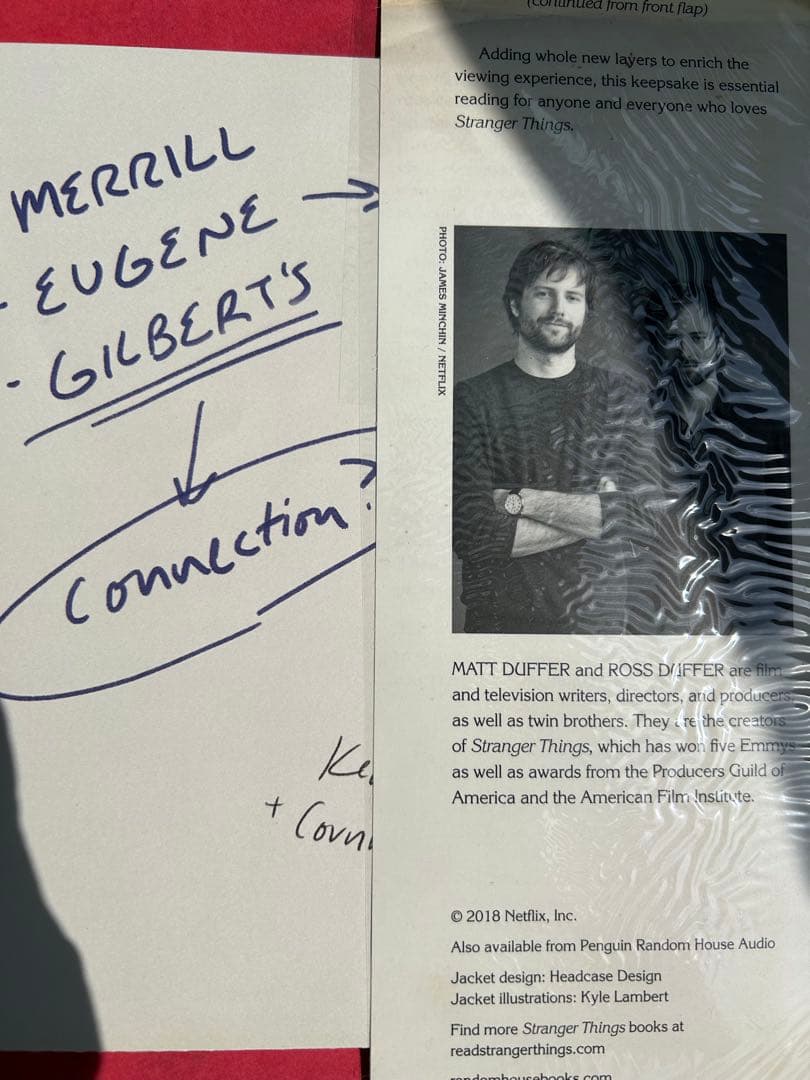 MERRILL
- EUGENE
- GILBERT'S
Connection?
+
(continued from front flap)
Adding whole new layers to enrich the
viewing experience, this keepsake is essential
reading for anyone and everyone who loves
Stranger Things.
PHOTO: JAMES MINCHIN / NETFLIX
MATT DUFFER and ROSS DUFFER are film
and television writers, directors, and producers,
as well as twin brothers. They are the creators
of Stranger Things, which has won five Emmys
as well as awards from the Producers Guild of
America and the American Film Institute.
© 2018 Netflix, Inc.
Also available from Penguin Random House Audio
Jacket design: Headcase Design
Jacket illustrations: Kyle Lambert
Find more Stranger Things books at
readstrangerthings.com
randomhousebooks.com